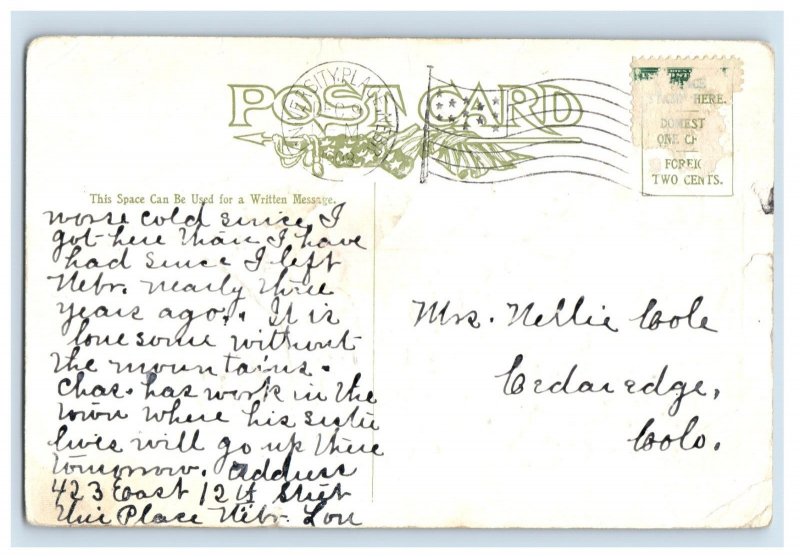 POST CARD
UNIVERSITY PLACE NEBR.
DEC 9
STAMP HERE.
DOMEST
ONE C
FOREI
TWO CENTS.
This Space Can Be Used for a Written Message.
worse cold since I
got here than I have
had since I left
Nebr. nearly three
years ago. It is
lonesome without
the mountains.
Chas. has work in the
town where his sister
lives will go up there
tomorrow. Address
423 East 12th Street
Uni Place Nebr. Lou
Mrs. Nellie Cole
Cedaredge,
Colo.